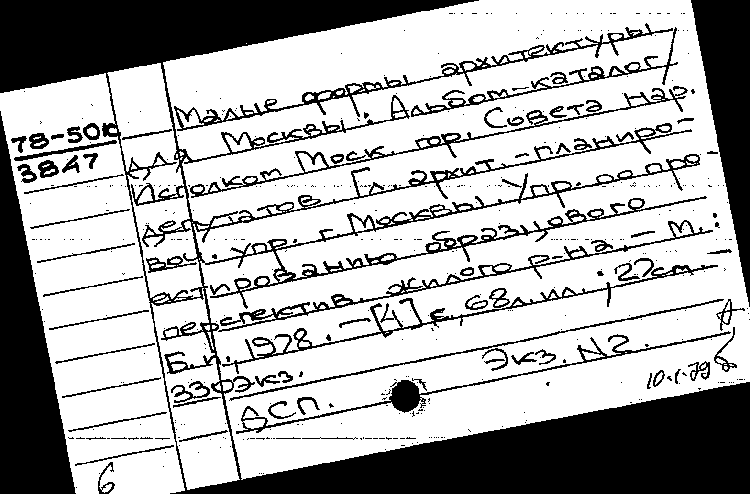 78-50к
3847
Малые формы архитектуры
для Москвы: Альбом-каталог /
Исполком Моск. гор. Совета нар.
депутатов. Гл. архит.-планиро-
воч. упр. г Москвы. Упр. по про-
ектированию образцового
перспектив. жилого р-на. — М.:
Б. и., 1978. — [4] с., 68 л. ил.; 27 см. —
330 экз.
Экз. N2.
ДСП.
10.1.79
6